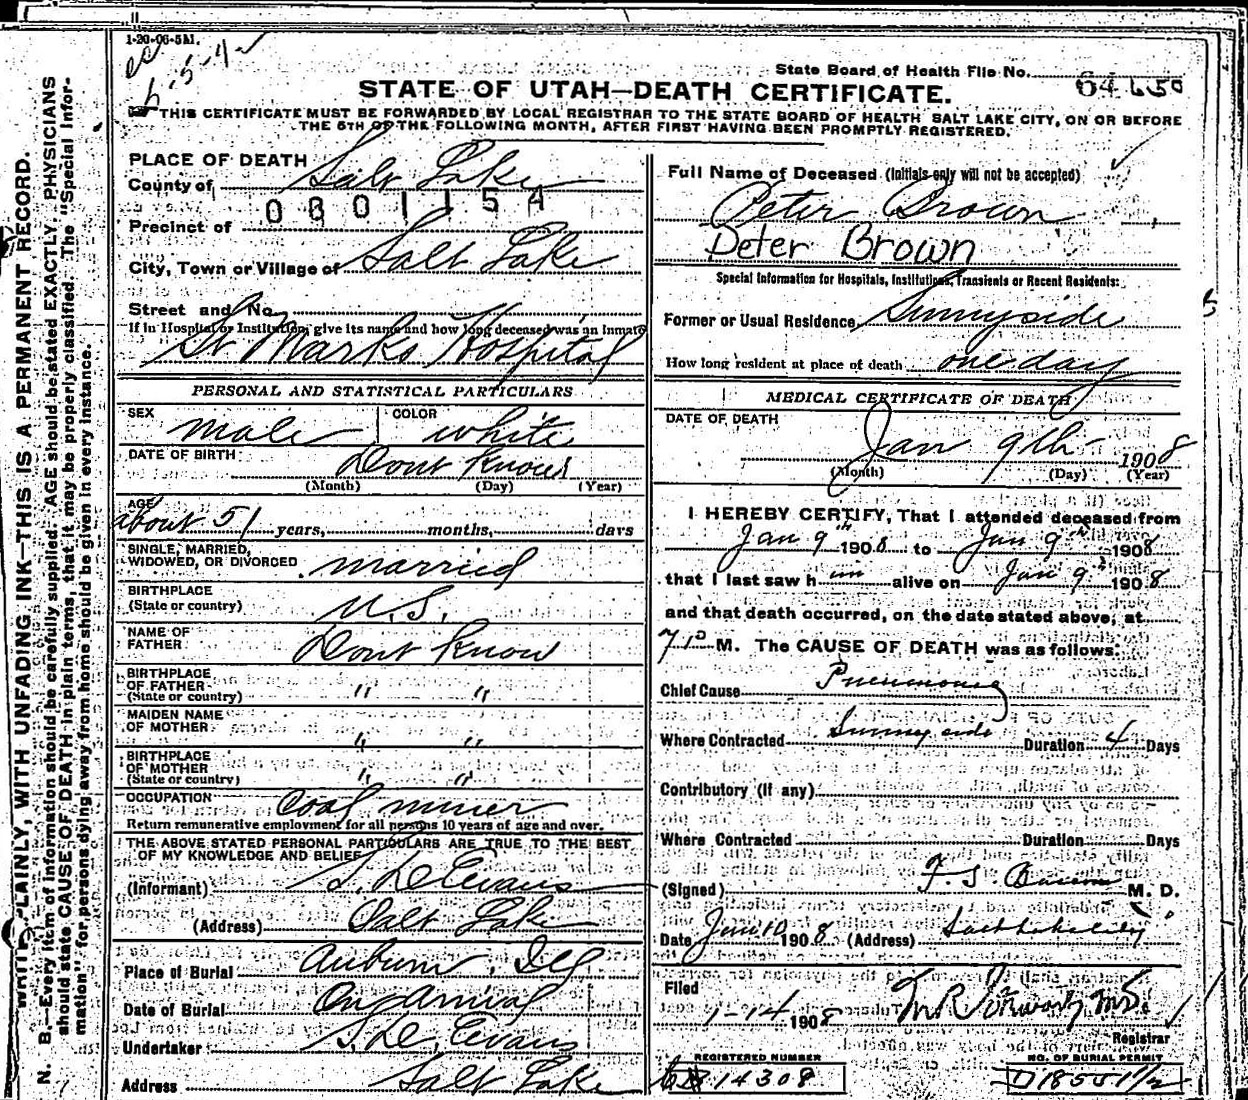 1-20-06-5M.
State Board of Health File No. 64 650
STATE OF UTAH—DEATH CERTIFICATE.
THIS CERTIFICATE MUST BE FORWARDED BY LOCAL REGISTRAR TO THE STATE BOARD OF HEALTH SALT LAKE CITY, ON OR BEFORE
THE 5TH OF THE FOLLOWING MONTH, AFTER FIRST HAVING BEEN PROMPTLY REGISTERED.
PLACE OF DEATH
County of Salt Lake
0301154
Precinct of
City, Town or Village of Salt Lake
Street and No.
If in Hospital or Institution, give its name and how long deceased was an inmate
St Marks Hospital
PERSONAL AND STATISTICAL PARTICULARS
SEX male COLOR white
DATE OF BIRTH Dont Know
(Month) (Day) (Year)
AGE about 51 years, months, days
SINGLE, MARRIED,
WIDOWED, OR DIVORCED married
BIRTHPLACE
(State or country) U.S.
NAME OF
FATHER Dont Know
BIRTHPLACE
OF FATHER
(State or country) " "
MAIDEN NAME
OF MOTHER " "
BIRTHPLACE
OF MOTHER
(State or country) " "
OCCUPATION Coal miner
Return remunerative employment for all persons 10 years of age and over.
THE ABOVE STATED PERSONAL PARTICULARS ARE TRUE TO THE BEST
OF MY KNOWLEDGE AND BELIEF
(Informant) S. D. Evans
(Address) Salt Lake
Place of Burial Auburn, Ill
Date of Burial On Arrival
Undertaker S. D. Evans
Address Salt Lake
Full Name of Deceased (Initials only will not be accepted)
Peter Brown
Peter Brown
Special Information for Hospitals, Institutions, Transients or Recent Residents:
Former or Usual Residence Sunnyside
How long resident at place of death one day
MEDICAL CERTIFICATE OF DEATH
DATE OF DEATH
Jan 9th 1908
(Month) (Day) (Year)
I HEREBY CERTIFY, That I attended deceased from
Jan 9th 1908 to Jan 9th 1908
that I last saw him alive on Jan 9th 1908
and that death occurred, on the date stated above, at
710 M. The CAUSE OF DEATH was as follows:
Chief Cause Pneumonia
Where Contracted Sunnyside Duration 4 Days
Contributory (if any)
Where Contracted Duration Days
(Signed) F. S. M. D.
Date Jan 10 1908 (Address) Salt Lake City
Filed
1-14 1908
Registrar
REGISTERED NUMBER
14308
NO. OF BURIAL PERMIT
D18551 1/2
WRITE PLAINLY, WITH UNFADING INK—THIS IS A PERMANENT RECORD.
N. B.—Every item of information should be carefully supplied. AGE should be stated EXACTLY. PHYSICIANS
should state CAUSE OF DEATH in plain terms, that it may be properly classified. The "Special Infor-
mation" for persons dying away from home should be given in every instance.